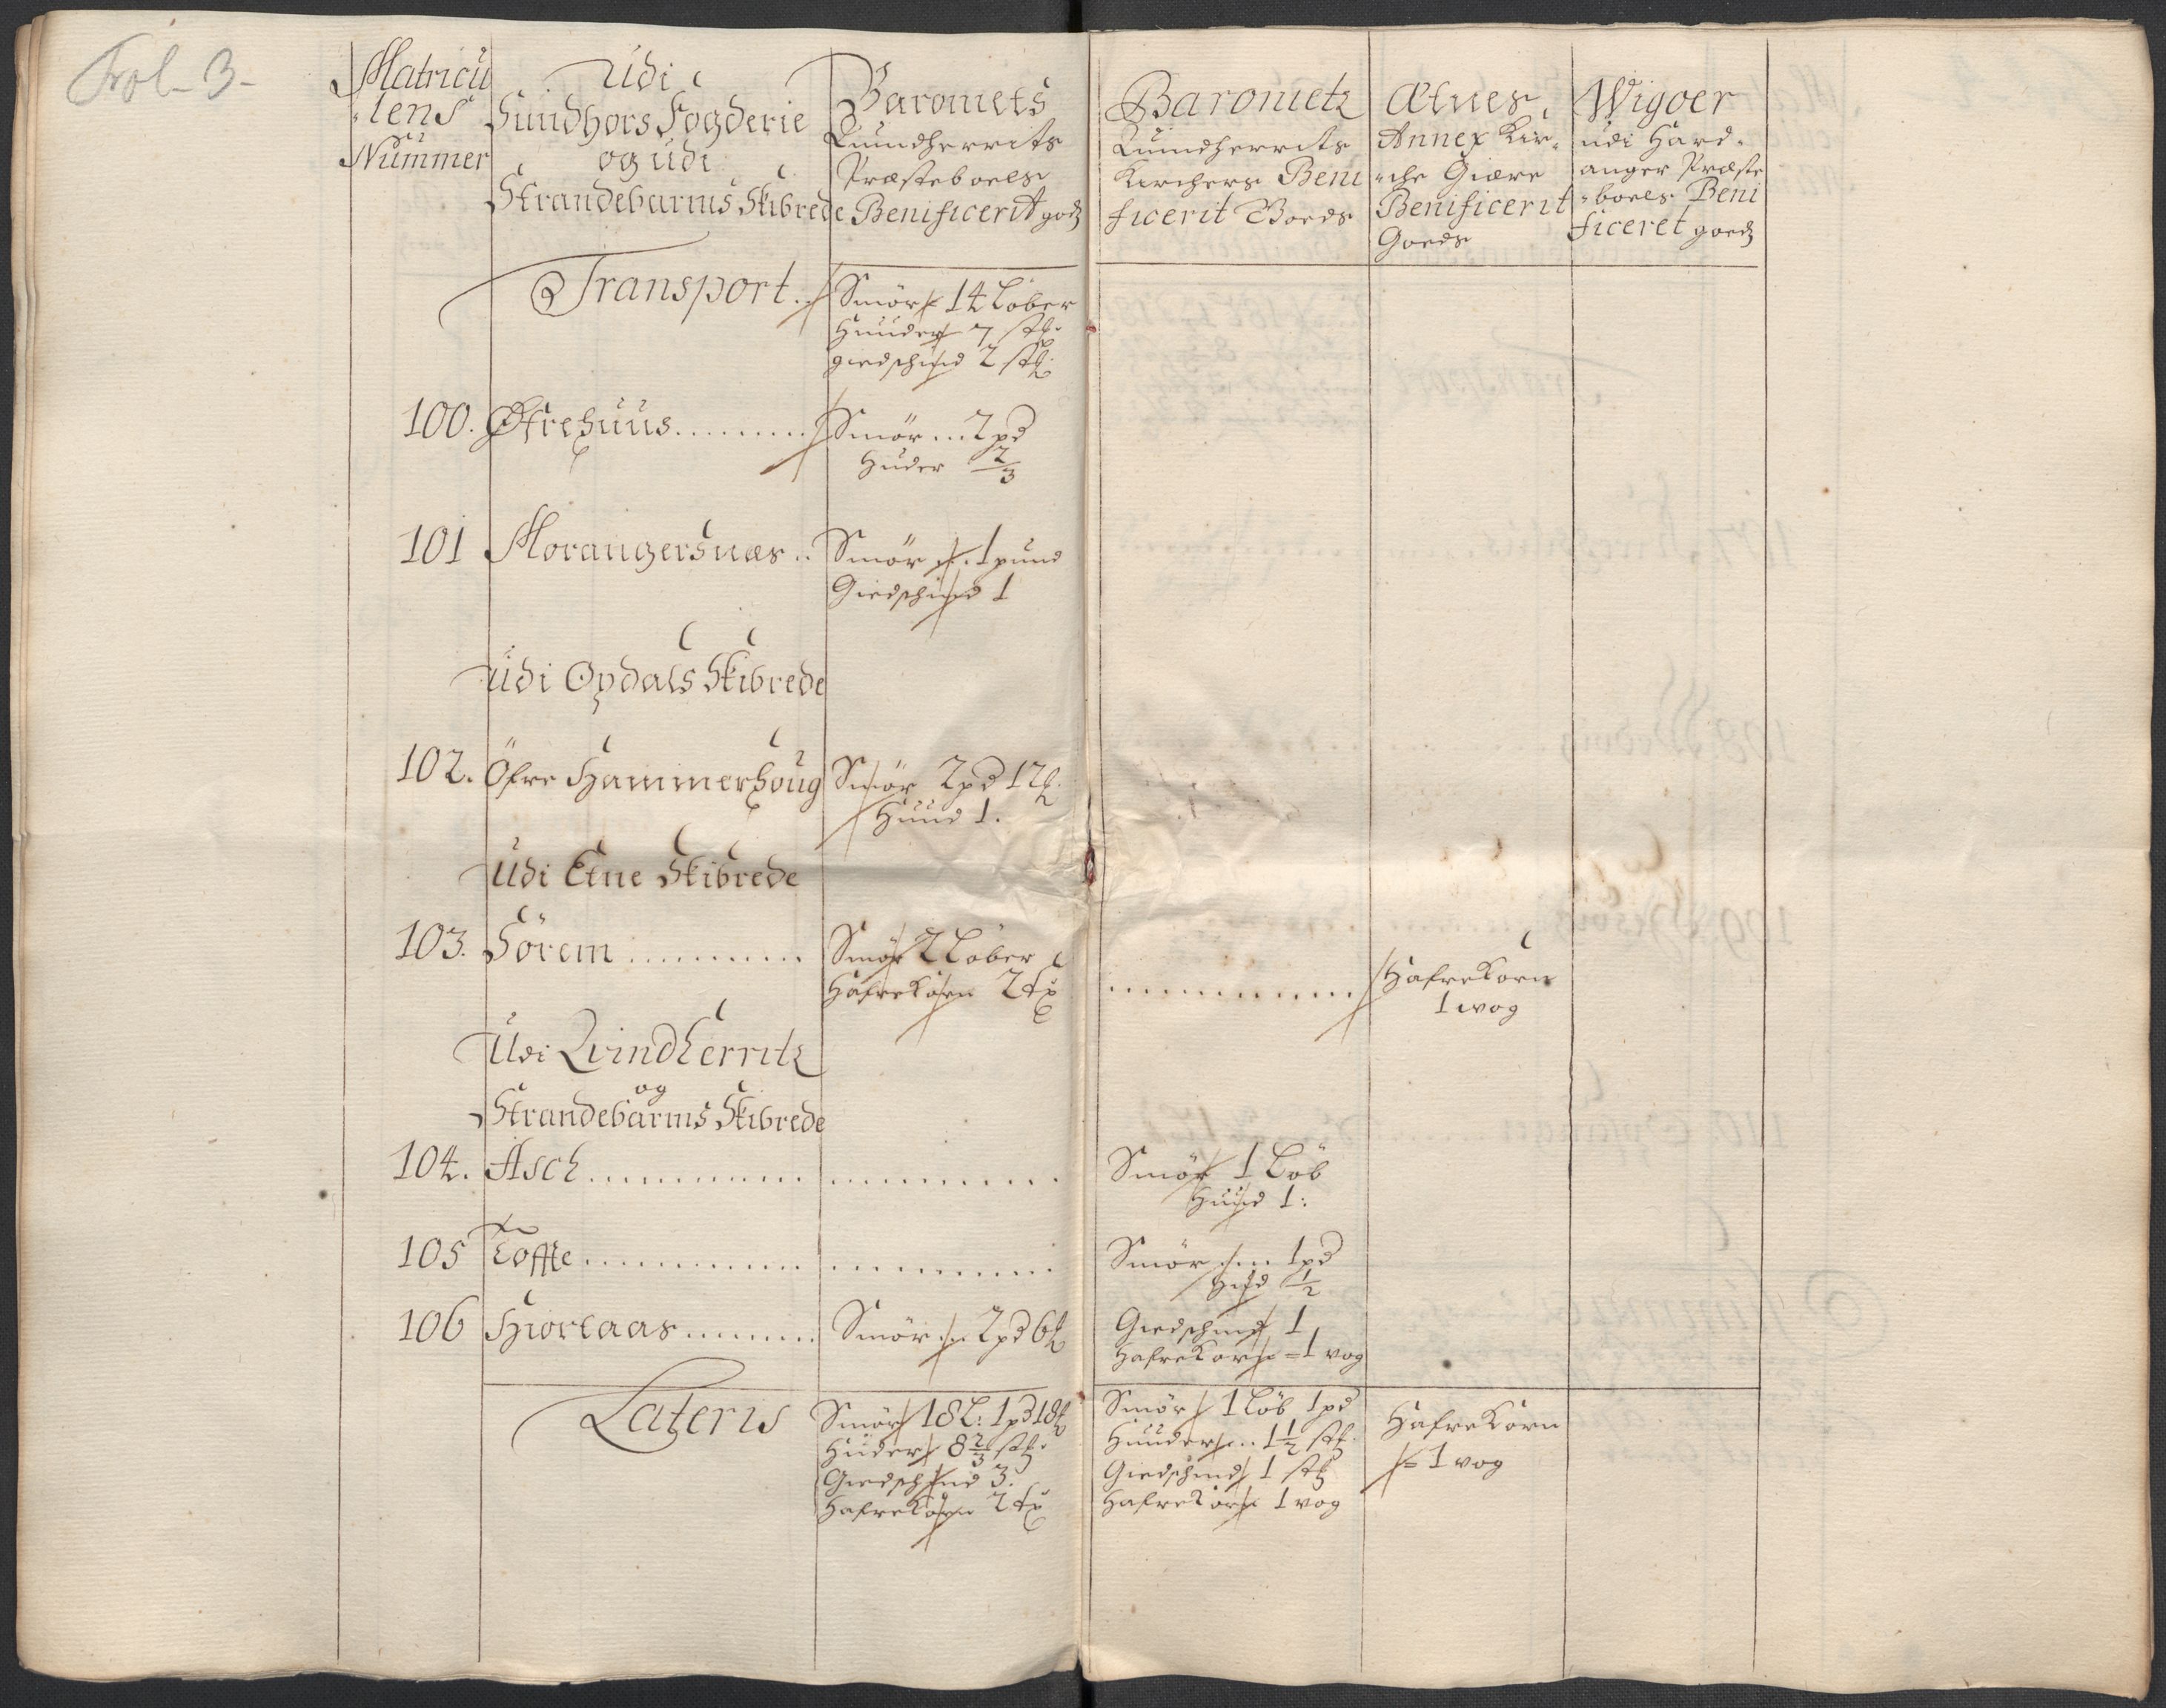 Fol- 3-
Matricu
lens
Nummer
Udi
Sundhors Fogderie
og udi
Strandebarms Skibrede
Baroniets
Quindherrits
Præsteboels
Benificerit godz
Baronietz
Quindherrits
Kirchers Beni
ficerit Goeds
Ætnes
Annex Kir-
che Giære
Benificerit
Goeds
Wigøer
udi Hard-
anger Præste
boels Beni
ficeret goedz
Transport.
Smör 14 Løber
Huuder 7 stk.
giedschind 2 stk.
100. Øfrehuus.........
Smör ... 2 pd
Huder 2/3
101 Morangersnæs..
Smör .. 1 pund
Giedschind 1
Udi Opdals Skibrede
102. Öfre Hammerhoug
Smör 2 pd 12 ℔.
Huud 1.
Udi Etne Skibrede
103. Sörem ...........
Smör 2 Løber
Hafrekorn 2 tr
............
Hafrekorn
1 wog
Udi Qvindherritz
og
Strandebarms Skibrede
104. Asch..............
............
Smör 1 Løb
Huud 1:
105 Toffte..............
............
Smör .... 1 pd
Hud 1/2
106 Hiortaas.........
Smör ... 2 pd 6 ℔
Giedschind 1
Hafrekorn = 1 vog
Lateris
Smör 18 L: 1 pd 18 ℔
Huder 8 2/3 stk.
Giedschind 3.
Hafrekorn 2 tr
Smör 1 Løb 1 pd
Huuder .. 1 1/2 stk.
Giedschind 1 stk
Hafrekorn 1 vog
Hafrekorn
= 1 vog